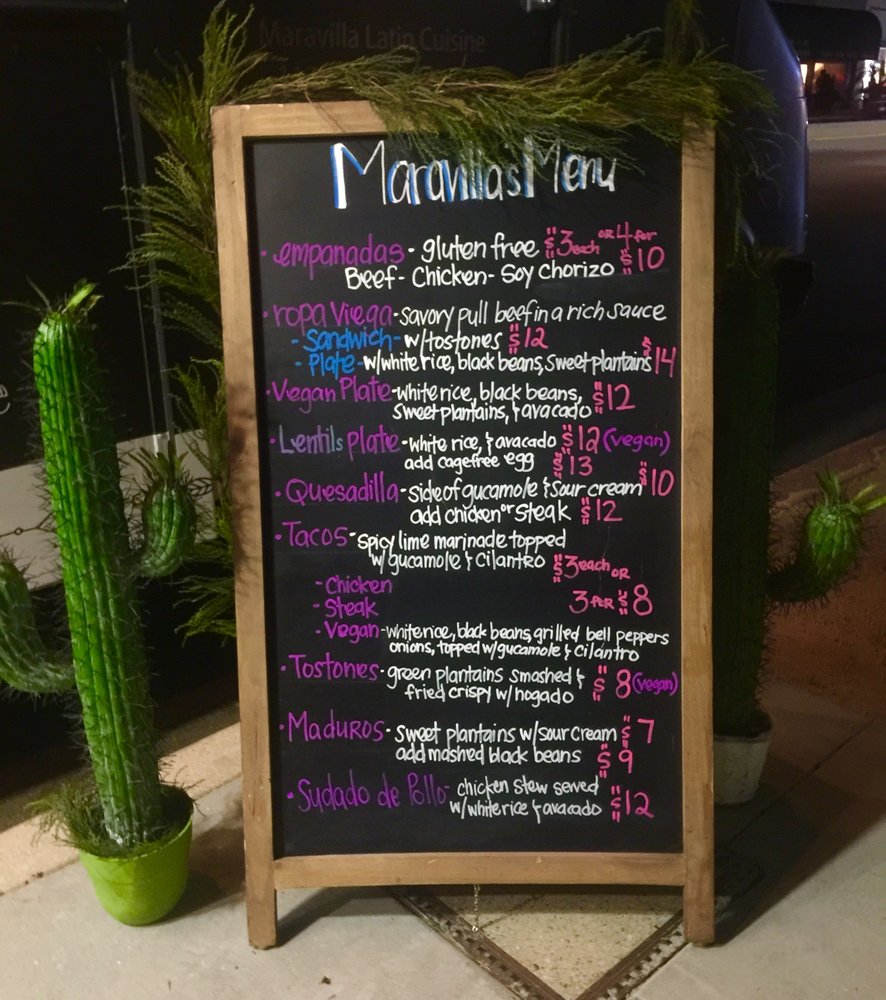 Maravilla Latin Cuisine
Maravilla's Menu
• empanadas - gluten free $3 each OR 4 for $10
Beef - Chicken - Soy Chorizo
• ropa Viega - savory pull beef in a rich sauce
- Sandwich - w/tostones $12
- Plate - w/white rice, black beans, sweet plantains $14
• Vegan Plate - white rice, black beans, $12
sweet plantains, & avacado
• Lentils plate - white rice, & avacado $12 (vegan)
add cagefree egg $13
• Quesadilla - side of gucamole & sour cream $10
add chicken or steak $12
• Tacos - spicy lime marinade topped
w/gucamole & cilantro $3 each OR
- Chicken
3 FOR $8
- Steak
- Vegan - white rice, black beans, grilled bell peppers
onions, topped w/gucamole & cilantro
• Tostones - green plantains smashed & $8 (vegan)
fried crispy w/hogado
• Maduros - sweet plantains w/sour cream $7
add mashed black beans $9
• Sudado de Pollo - chicken stew served
w/white rice & avacado $12